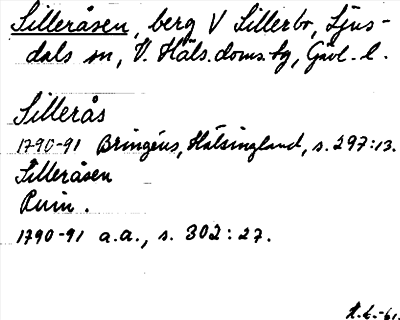 Silleråsen, berg V Sillerbo, Ljus-
dals sn, V. Häls. doms. hg, Gävl. l.
Sillerås
1790-91 Bringéus, Hälsingland, s. 297:13.
Silleråsen
Ruin.
1790-91 a.a., s. 302:27.